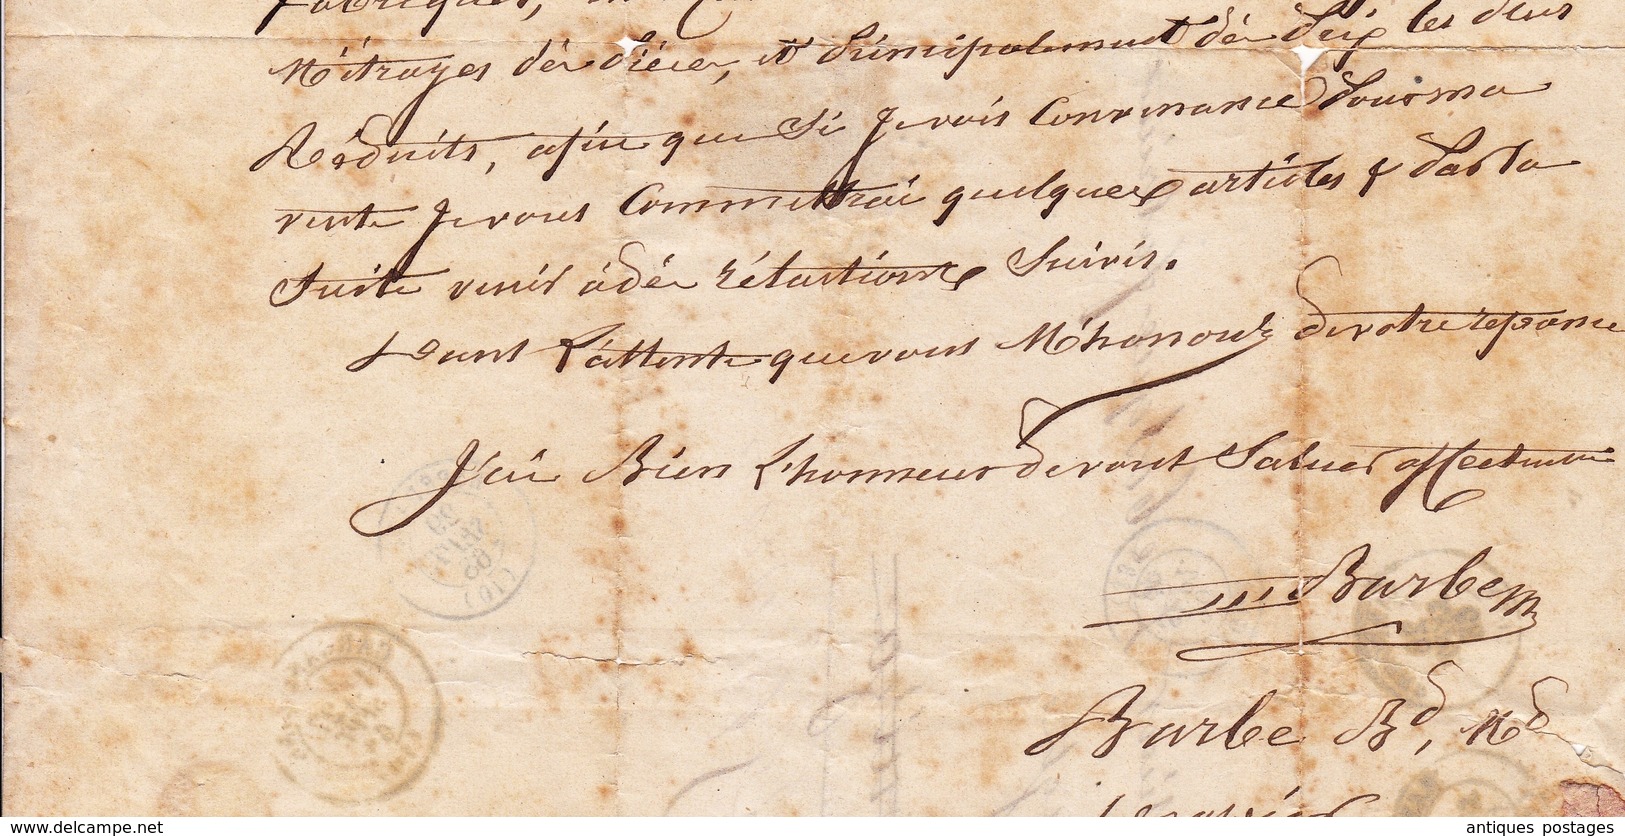 Fabriques,
Métrages dés Piéces, et Principalement dés Prix les plus
Réduits, afin que Si Je vois Convenance Pour ma
vente Je vous Commettrai quelques articles & Par la
Suite venir à dés rélactions Suivis.
Dans L'attente que vous M'honorez de votre reponse
J'ai Bien L'honneur de vous Saluer affectueu
Barbe
Barbe Bd, Md
antiques postages